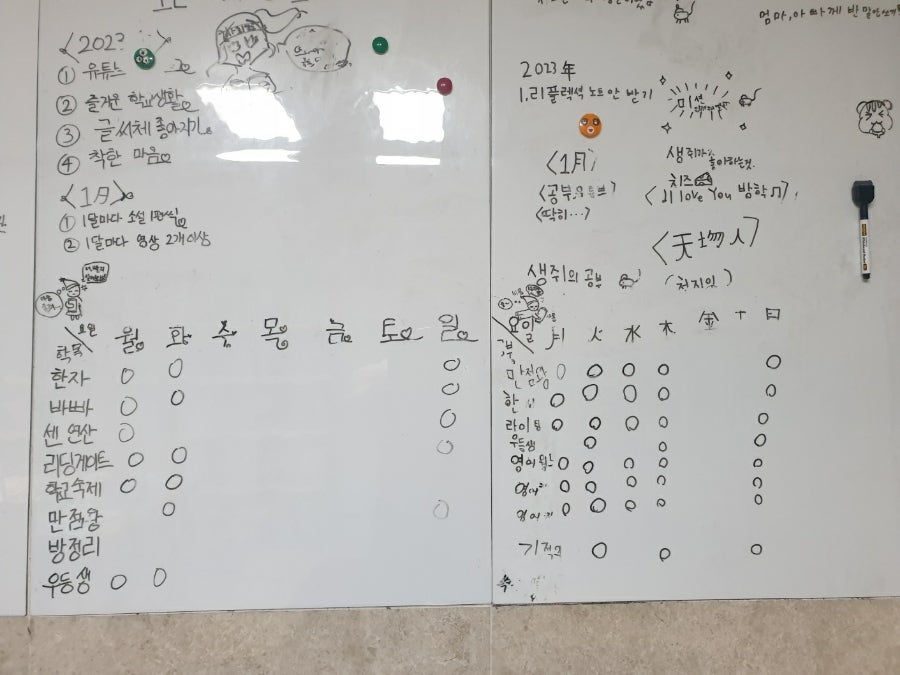 엄마, 아빠께 반말 안 쓰기
① 유튜브
② 즐거운 학교생활
③ 글씨체 좋아지기
④ 착한 마음
<1月>
① 1달마다 소설 1편씩
② 1달마다 영상 2개 이상
요일
월 화 수 목 금 토 일
한자
바빠
센 연산
리딩게이트
학교숙제
만점왕
방정리
우등생
2023年
1. 리플렉션 노트 안 받기
미션
<1月>
생쥐가
좋아하는 것
치즈
<공부, 유튜브>
<I love You 방학♫>
<딱히...>
<天地人>
생쥐의 공부
(천지인)
요일
月 火 水 木 金 土 日
만점왕
한
라이팅
우등생
영어
영어
영어
기적의